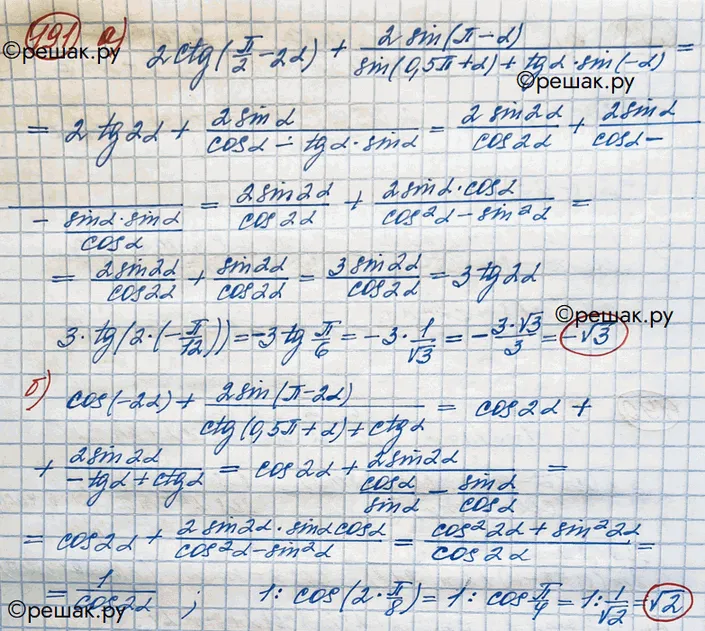 791 а)
©решак.ру
2ctg(π/2 - 2α) + 2sin(π-α)/(sin(0,5π+α) + tgα·sin(-α)) =
©решак.ру
= 2tg2α + 2sinα/(cosα - tgα·sinα) = 2sin2α/cos2α + 2sinα/(cosα -
- sinα·sinα/cosα) = 2sin2α/cos2α + 2sinα·cosα/(cos²α - sin²α) =
= 2sin2α/cos2α + sin2α/cos2α = 3sin2α/cos2α = 3tg2α
©решак.ру
3·tg(2·(-π/12)) = -3tg π/6 = -3·1/√3 = -3·√3/3 = -√3
б) cos(-2α) + 2sin(π-2α)/(ctg(0,5π+α) + ctgα) = cos2α +
+ 2sin2α/(-tgα + ctgα) = cos2α + 2sin2α/(cosα/sinα - sinα/cosα) =
= cos2α + 2sin2α·sinαcosα/(cos²α - sin²α) = (cos²2α + sin²2α)/cos2α =
= 1/cos2α ; 1: cos(2·π/8) = 1: cos π/4 = 1: 1/√2 = √2
©решак.ру